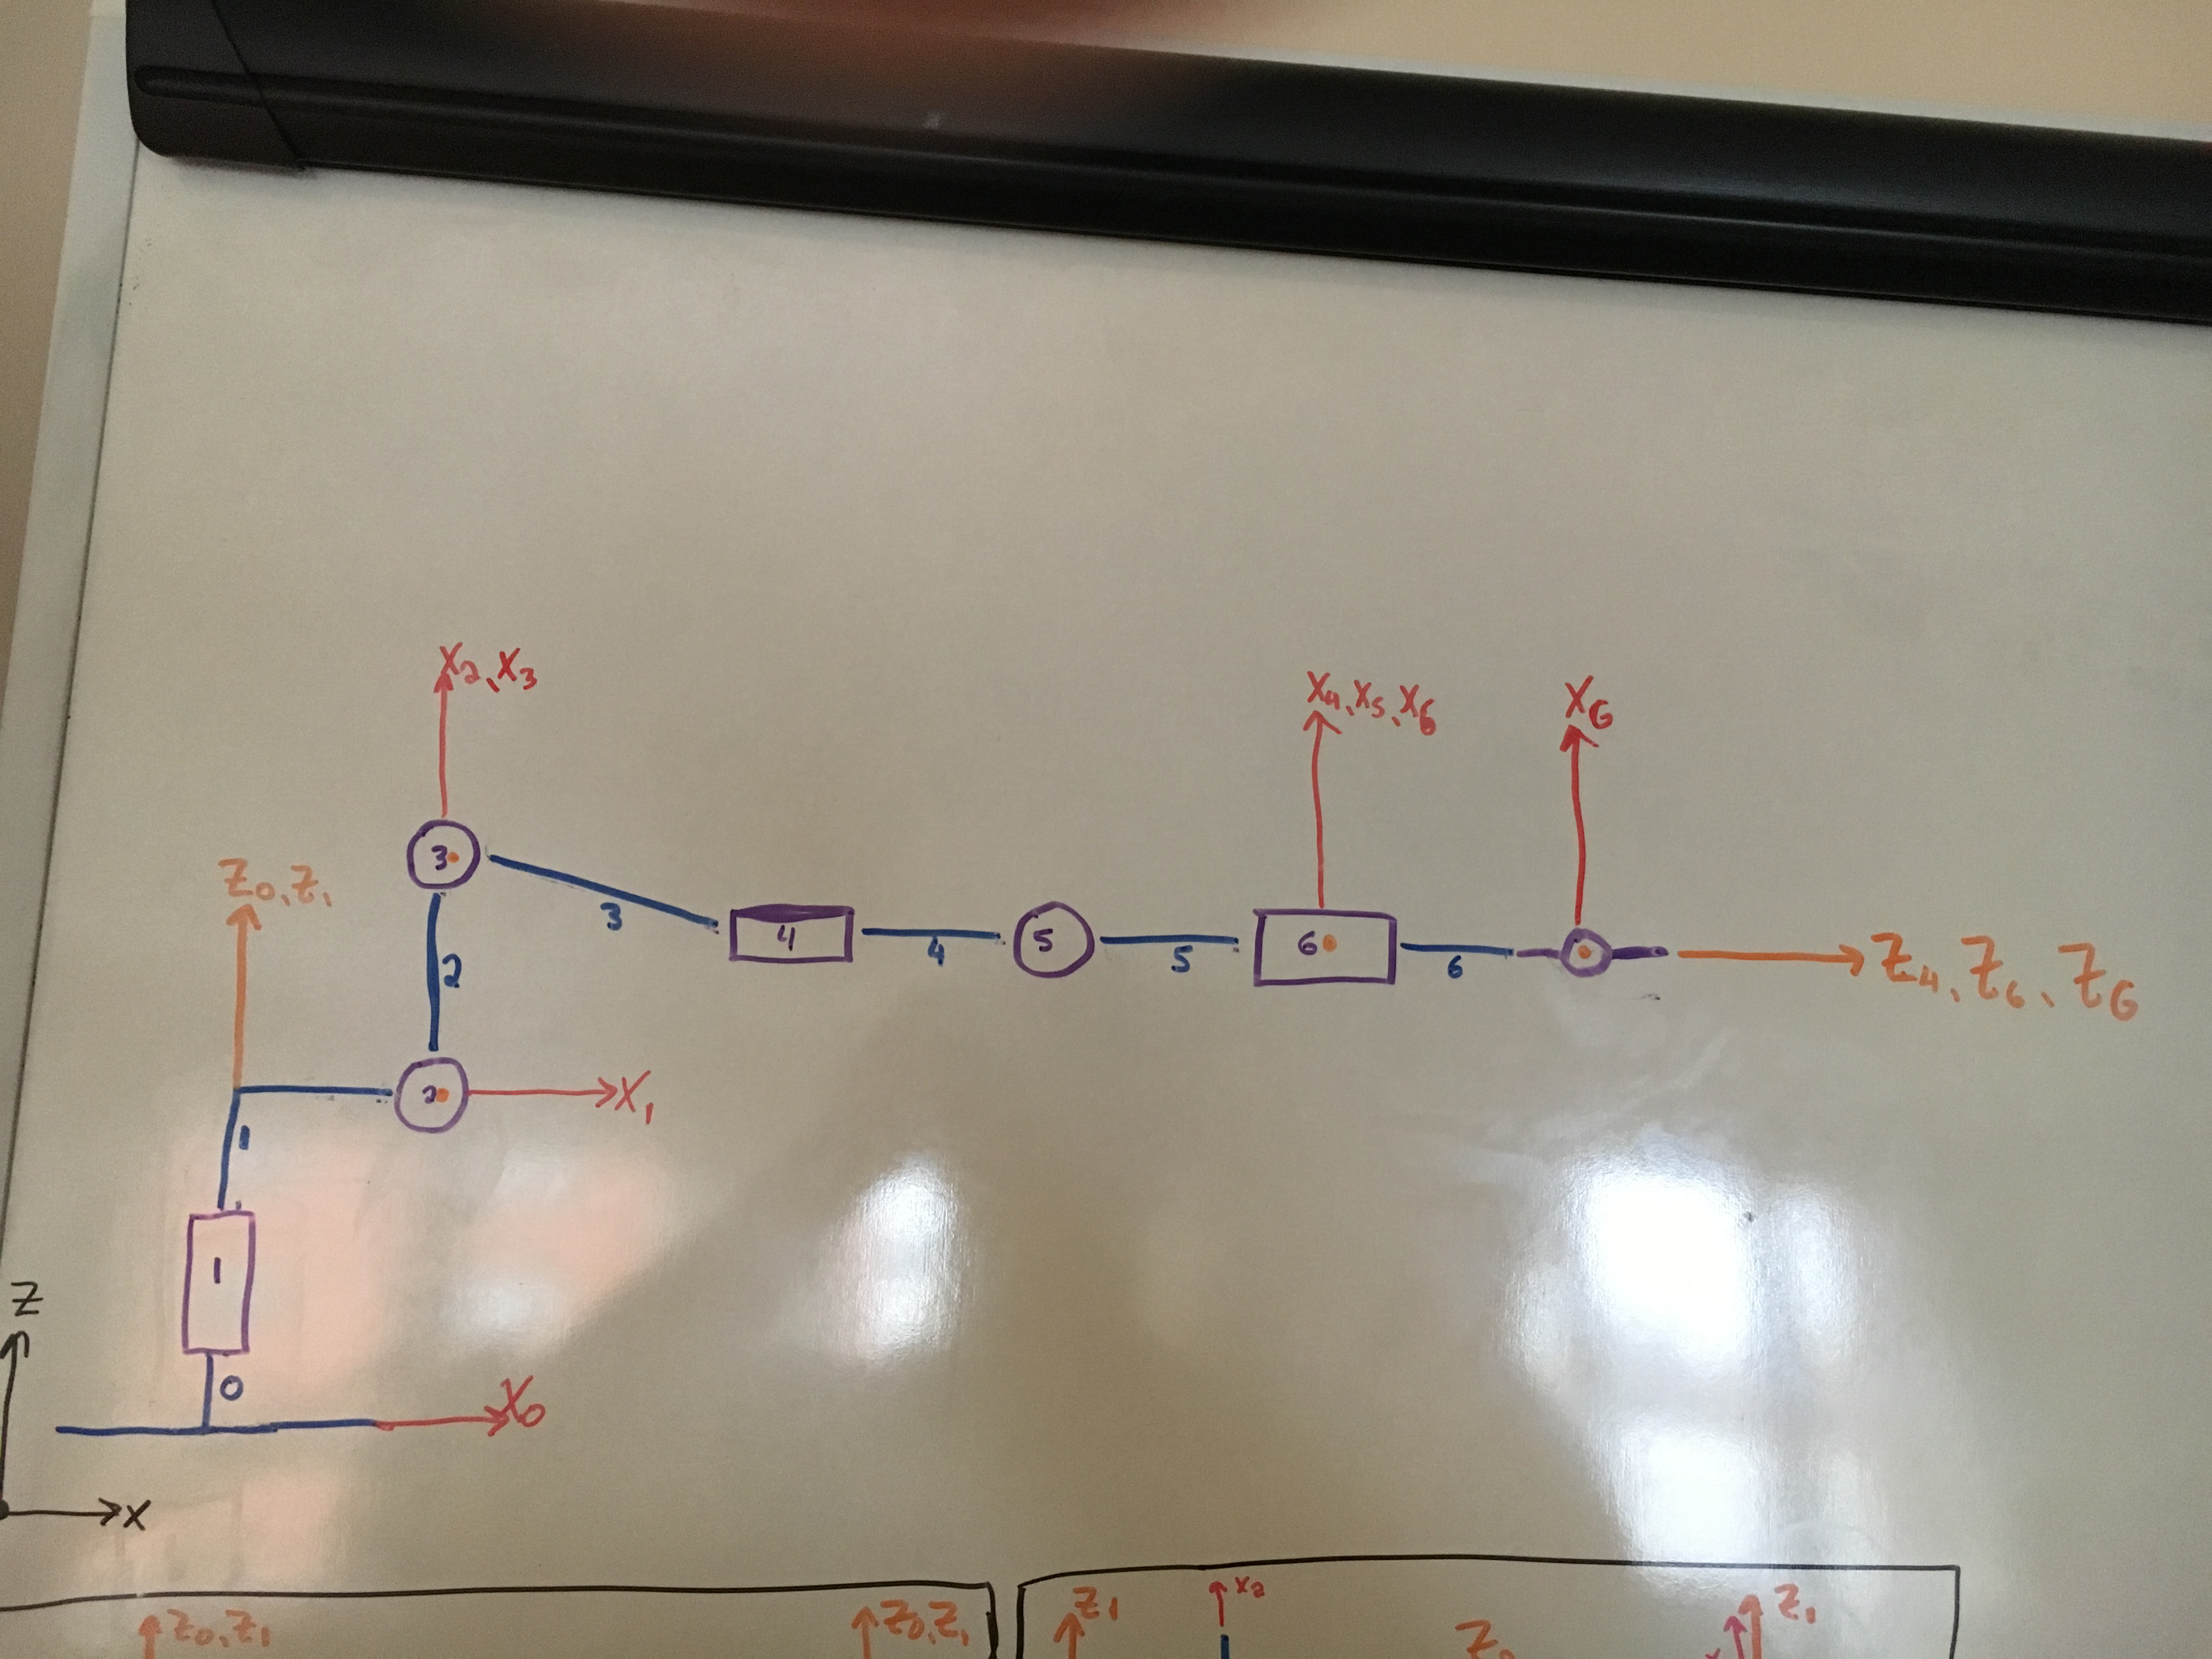 X2, X3
X4, X5, X6
XG
Z0, Z1
3
3
4
4
5
5
6
6
Z4, Z6, ZG
2
2
X1
1
1
Z
0
X0
X
Z0, Z1
Z0, Z1
Z1
X2
Z1